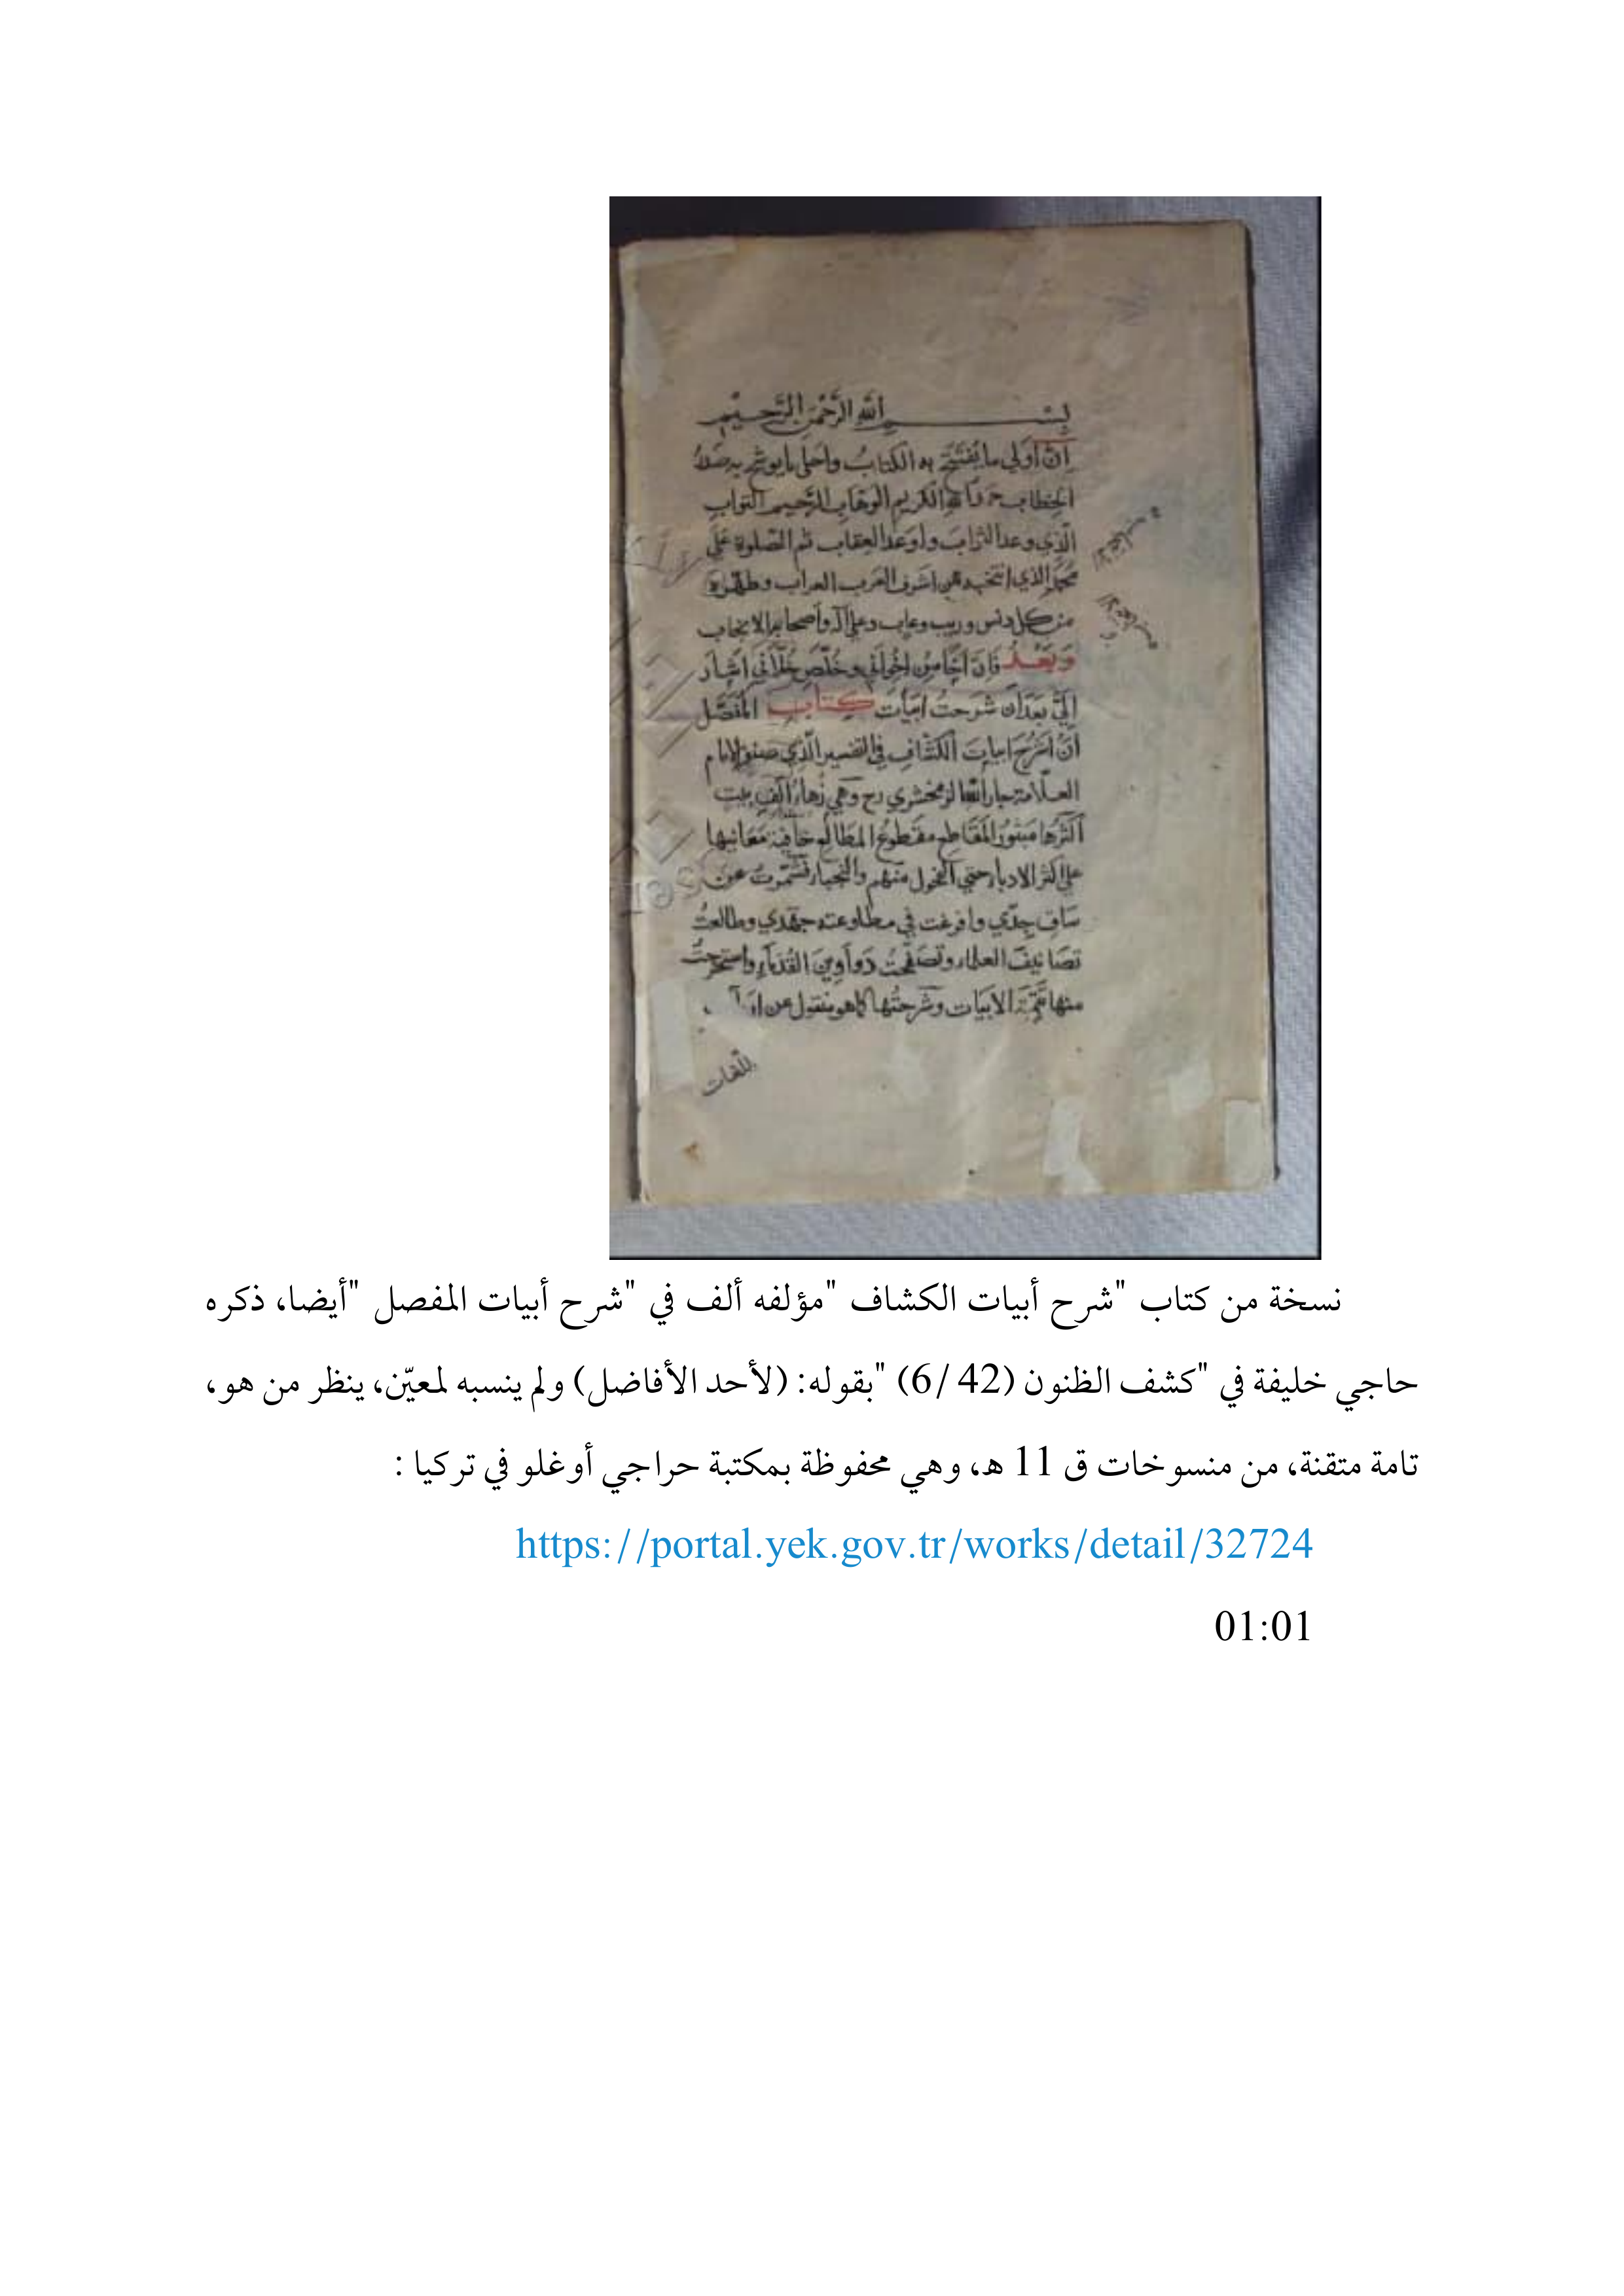 بسم الله الرحمن الرحيم
ان اولي ما يفتتح به الكتاب واحلي ما يوشح به صدر
الخطاب حمد الله الكريم الوهاب الرحيم التواب
الذي وعد الثواب واوعد العقاب ثم الصلوة علي
محمد الذي انتخبه من اشرف العرب العراب وطهره
من كل دنس وريب وعاب وعلي آله واصحابه الانجاب
وَبَعْدُ فَاِنَّ اَخًا مِنْ اِخْوَاني وخُلَّصِ خُلَّاني اَشار
اِلَيَّ بَعدَ اَن شَرحتُ اَبيَات كتاب المُفَصَّل
اَنْ اَشْرَح ابيات الكَشّافِ في التفسير الّذي صنفه الامام
العلّامة جار الله الزمخشري رح وهي زُهاءُ الفِ بيت
اكثرها مبتور المَقَاطِع مقطوع المطالع خافية مَعَانيها
علي اكثر الادباء حتي الفحول منهم والنجباء فشمّرت عن
سَاقِ جِدّي وافرغت في مطاوعته جهدي وطالعتُ
تصَانيفَ العلماء وتصَفّحتُ دَوَاوِينَ القُدَمَاءِ واستخرجتُ
منها تَتِمَّةَ الاَبيَات وشَرحتُها كما هو منقول عن
للغات
نسخة من كتاب "شرح أبيات الكشاف "مؤلفه ألف في "شرح أبيات المفصل "أيضا، ذكره
حاجي خليفة في "كشف الظنون (42 /6) "بقوله: (لأحد الأفاضل) ولم ينسبه لمعيّن، ينظر من هو،
تامة متقنة، من منسوخات ق 11 هـ، وهي محفوظة بمكتبة حراجي أوغلو في تركيا :
https://portal.yek.gov.tr/works/detail/32724
01:01